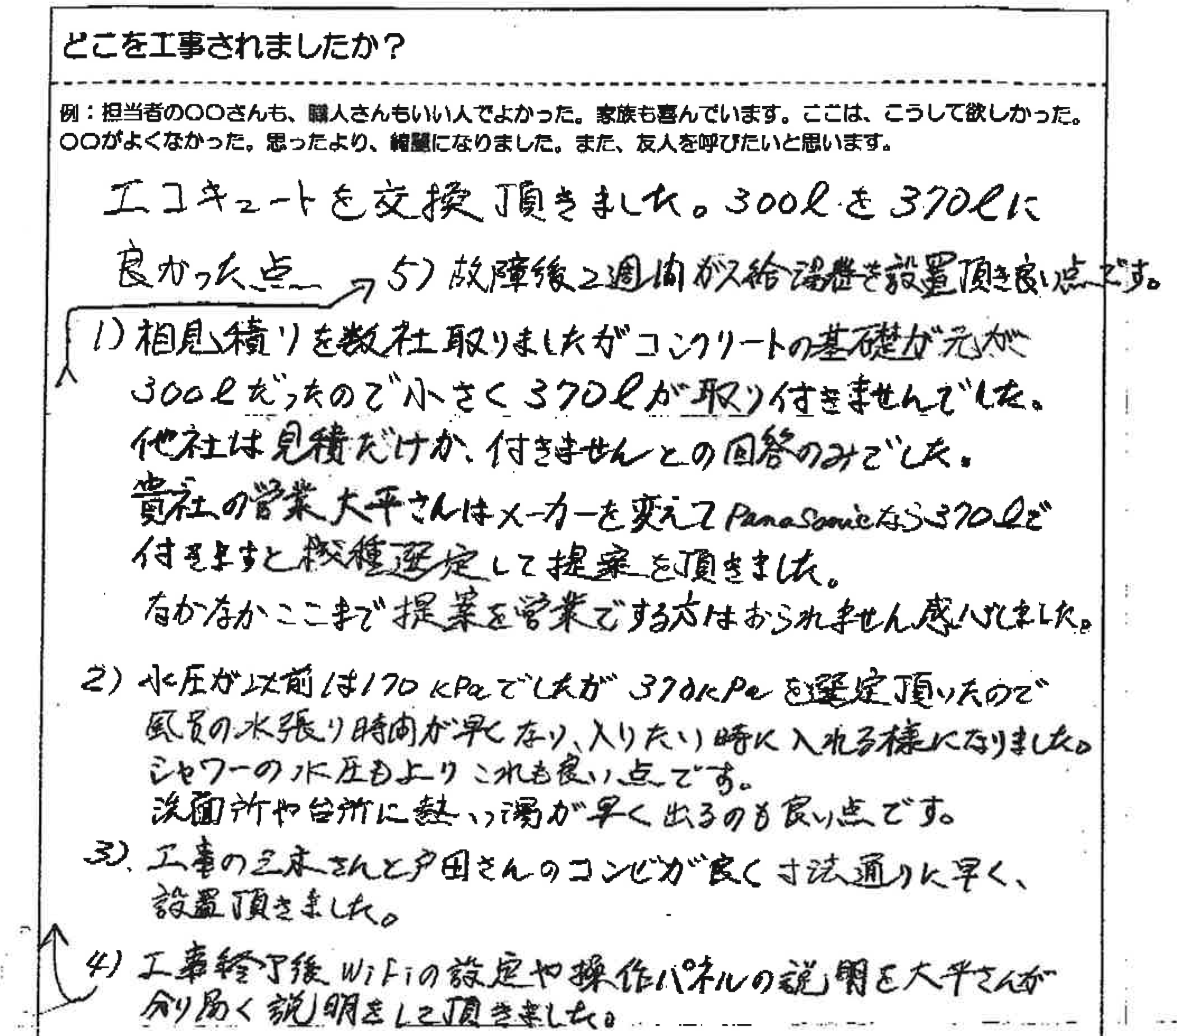 どこを工事されましたか？
例：担当者の○○さんも、職人さんもいい人でよかった。家族も喜んでいます。ここは、こうして欲しかった。
○○がよくなかった。思ったより、綺麗になりました。また、友人を呼びたいと思います。
エコキュートを交換頂きました。300ℓを370ℓに
良かった点
5) 故障後2週間ガス給湯器を設置頂き良い点です。
1) 相見積りを数社取りましたがコンクリートの基礎が元が
300ℓだったので小さく370ℓが取り付きませんでした。
他社は見積だけか、付きませんとの回答のみでした。
貴社の営業大平さんはメーカーを変えてPanasonicなら370ℓで
付きますと機種選定して提案を頂きました。
なかなかここまで提案を営業でする方はおられません感心しました。
2) 水圧が以前は170KPaでしたが370KPaを選定頂いたので
風呂の水張り時間が早くなり、入りたい時に入れる様になりました。
シャワーの水圧もよりこれも良い点です。
洗面所や台所に熱いう湯が早く出るのも良い点です。
3)、工事の三木さんと戸田さんのコンビが良く寸法通りに早く、
設置頂きました。
4) 工事終了後WiFiの設定や操作パネルの説明を大平さんが
分り易く説明をして頂きました。